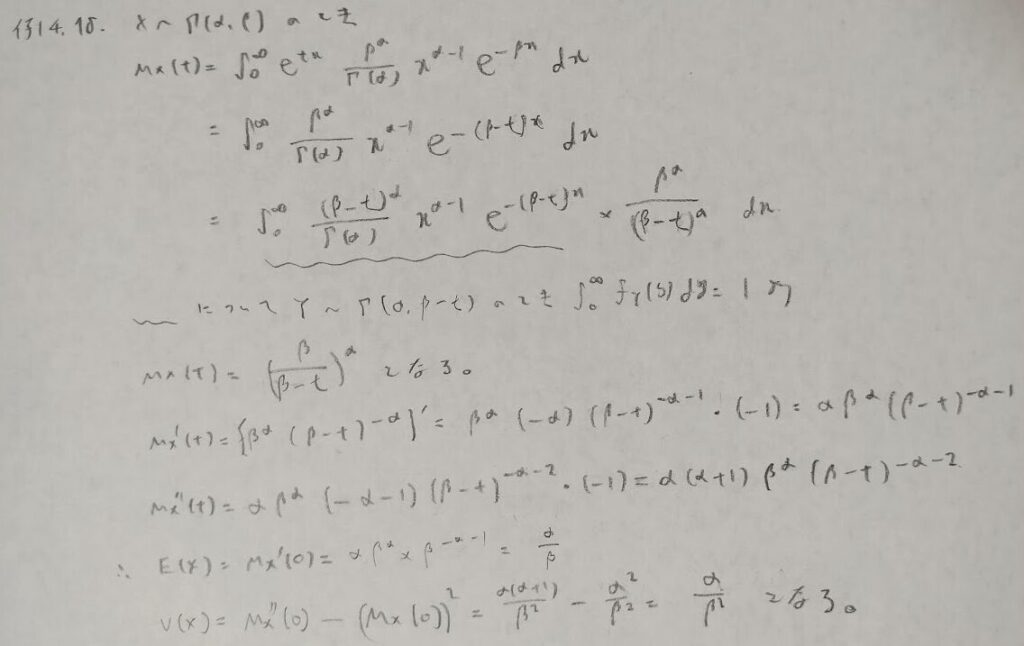 例4.18. X ~ Γ(α,β) のとき
Mx(t) = ∫₀^∞ e^{tx} β^α/Γ(α) x^{α-1} e^{-βx} dx
= ∫₀^∞ β^α/Γ(α) x^{α-1} e^{-(β-t)x} dx
= ∫₀^∞ (β-t)^α/Γ(α) x^{α-1} e^{-(β-t)x} × β^α/(β-t)^α dx
について Y ~ Γ(α, β-t) のとき ∫₀^∞ f_Y(y) dy = 1 より
Mx(t) = (β/(β-t))^α となる。
Mx'(t) = {β^α (β-t)^{-α}}' = β^α (-α) (β-t)^{-α-1} · (-1) = αβ^α (β-t)^{-α-1}
Mx''(t) = αβ^α (-α-1) (β-t)^{-α-2} · (-1) = α(α+1) β^α (β-t)^{-α-2}
∴ E(X) = Mx'(0) = αβ^α × β^{-α-1} = α/β
V(X) = Mx''(0) - (Mx(0))² = α(α+1)/β² - α²/β² = α/β² となる。